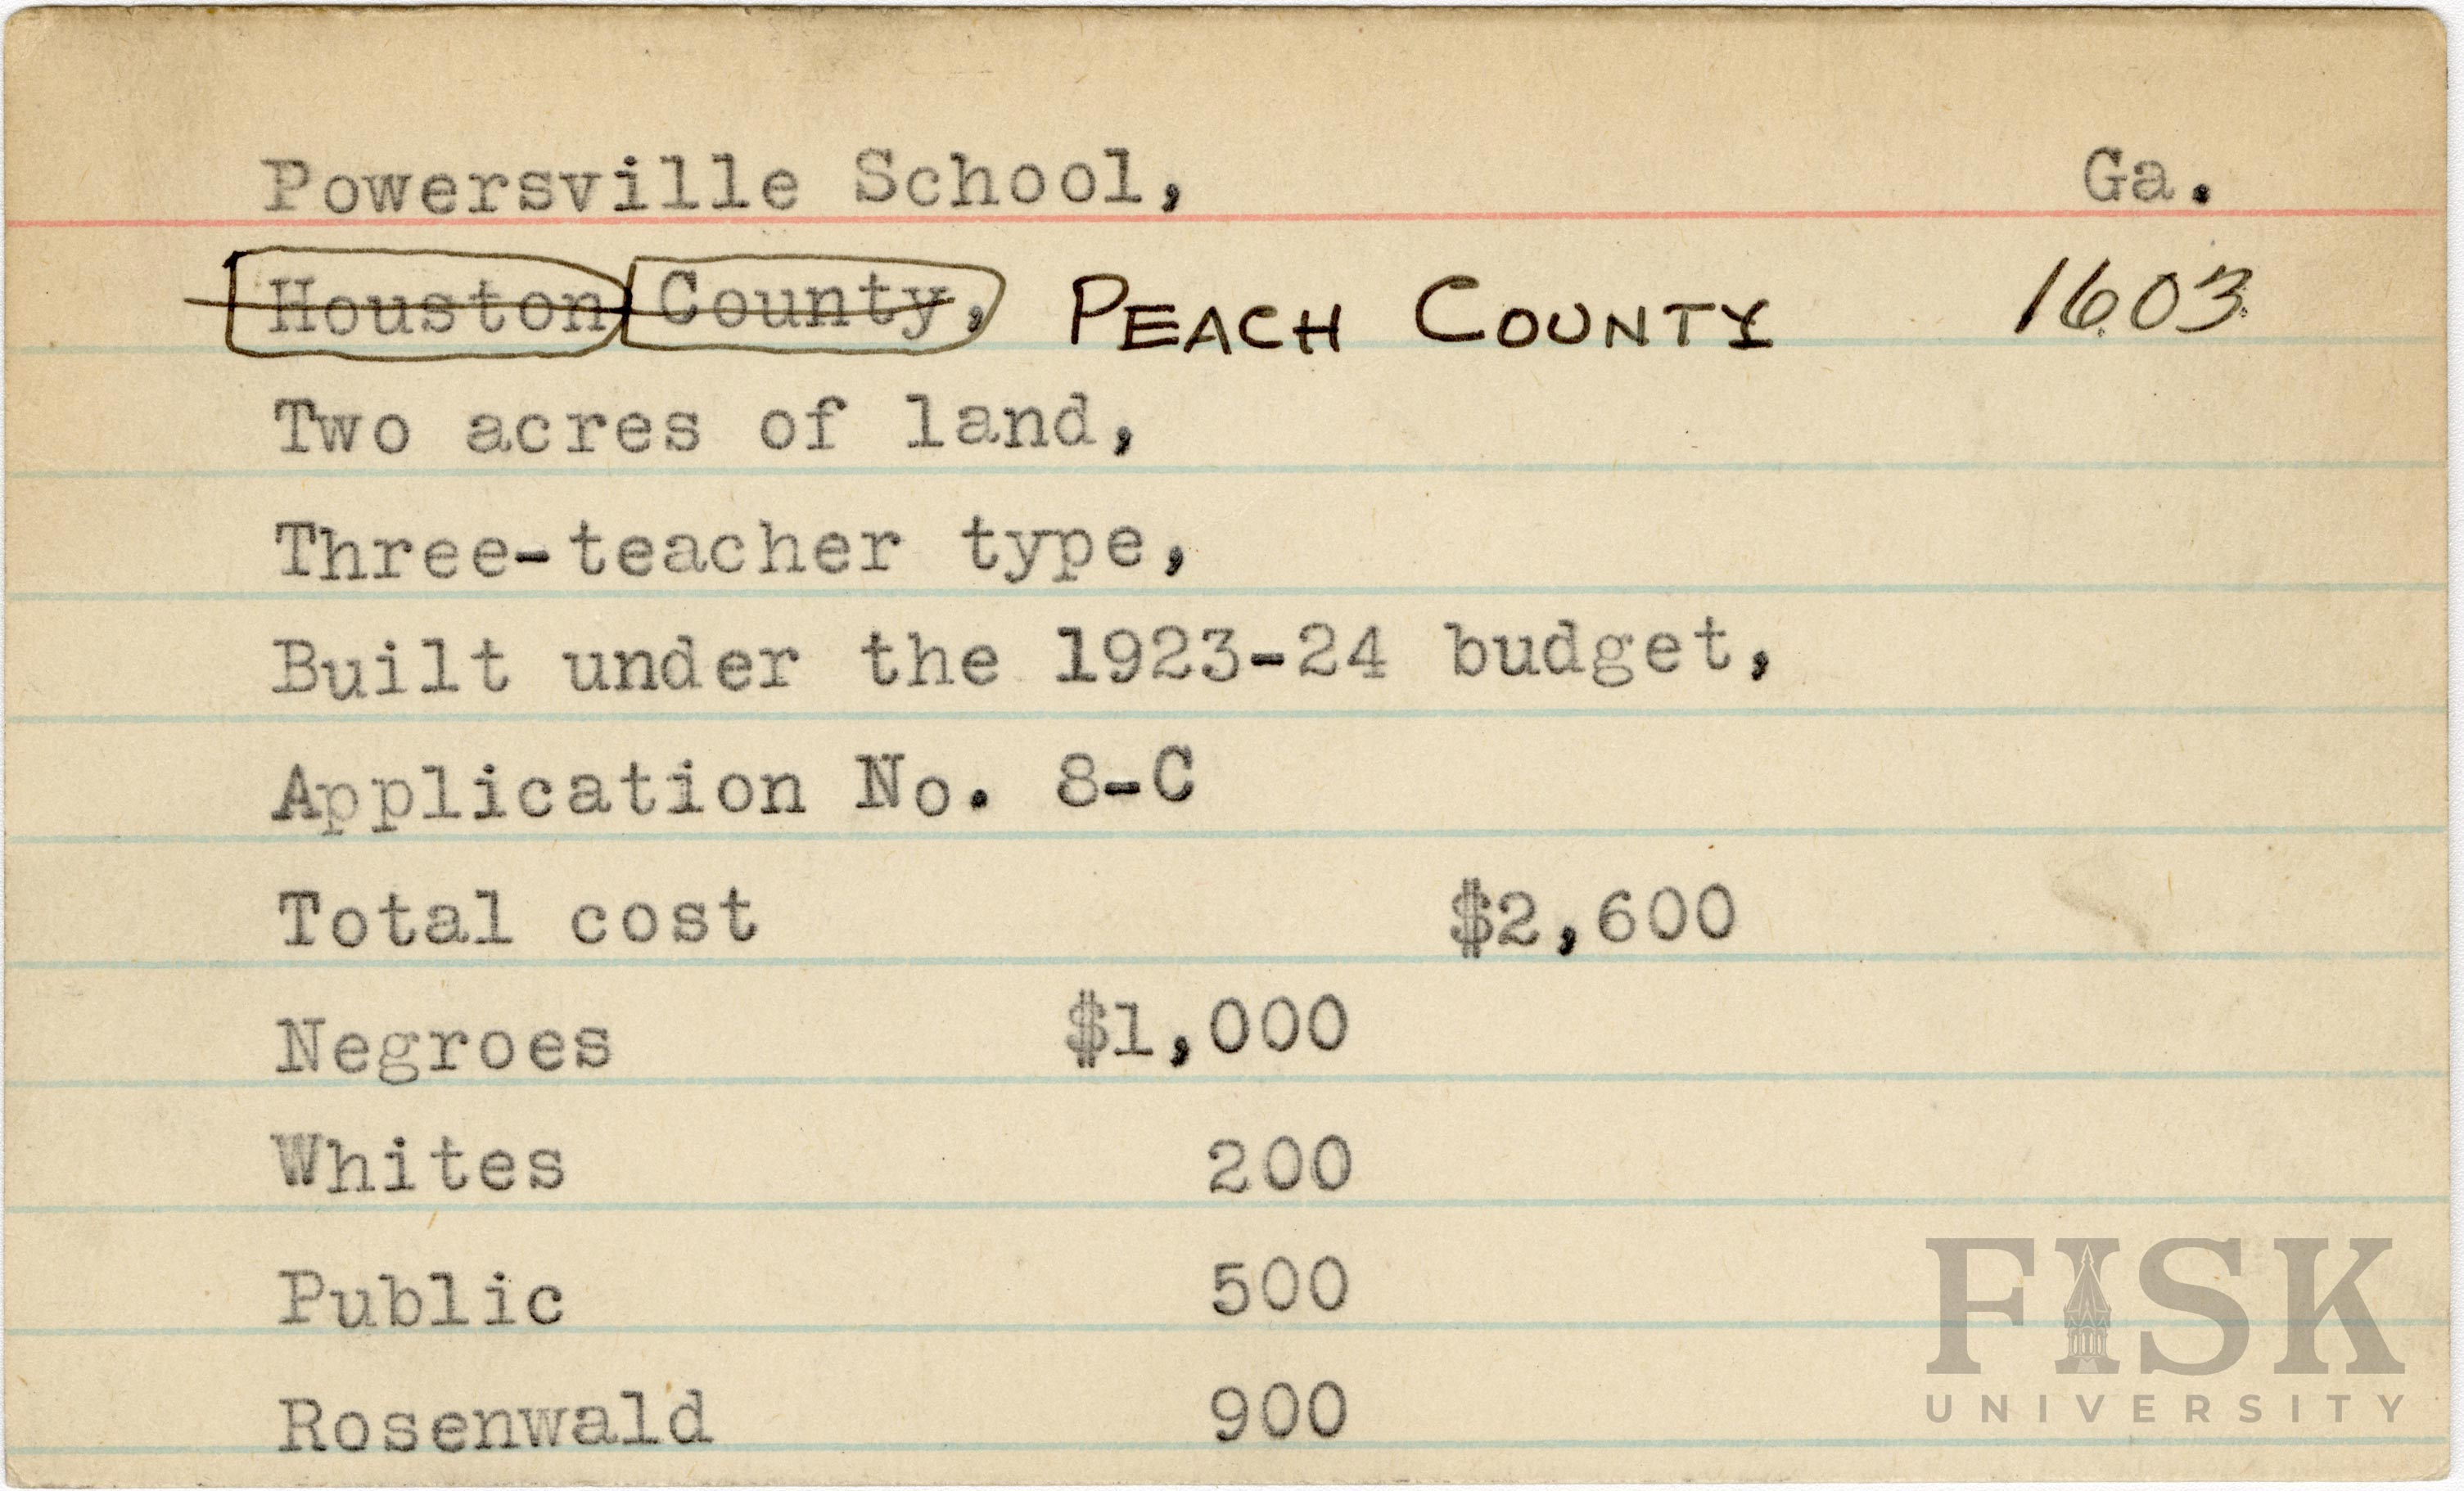 Powersville School, Ga.
Houston County, PEACH COUNTY 1603
Two acres of land,
Three-teacher type,
Built under the 1923-24 budget,
Application No. 8-C
Total cost $2,600
Negroes $1,000
Whites 200
Public 500
Rosenwald 900
FISK
UNIVERSITY